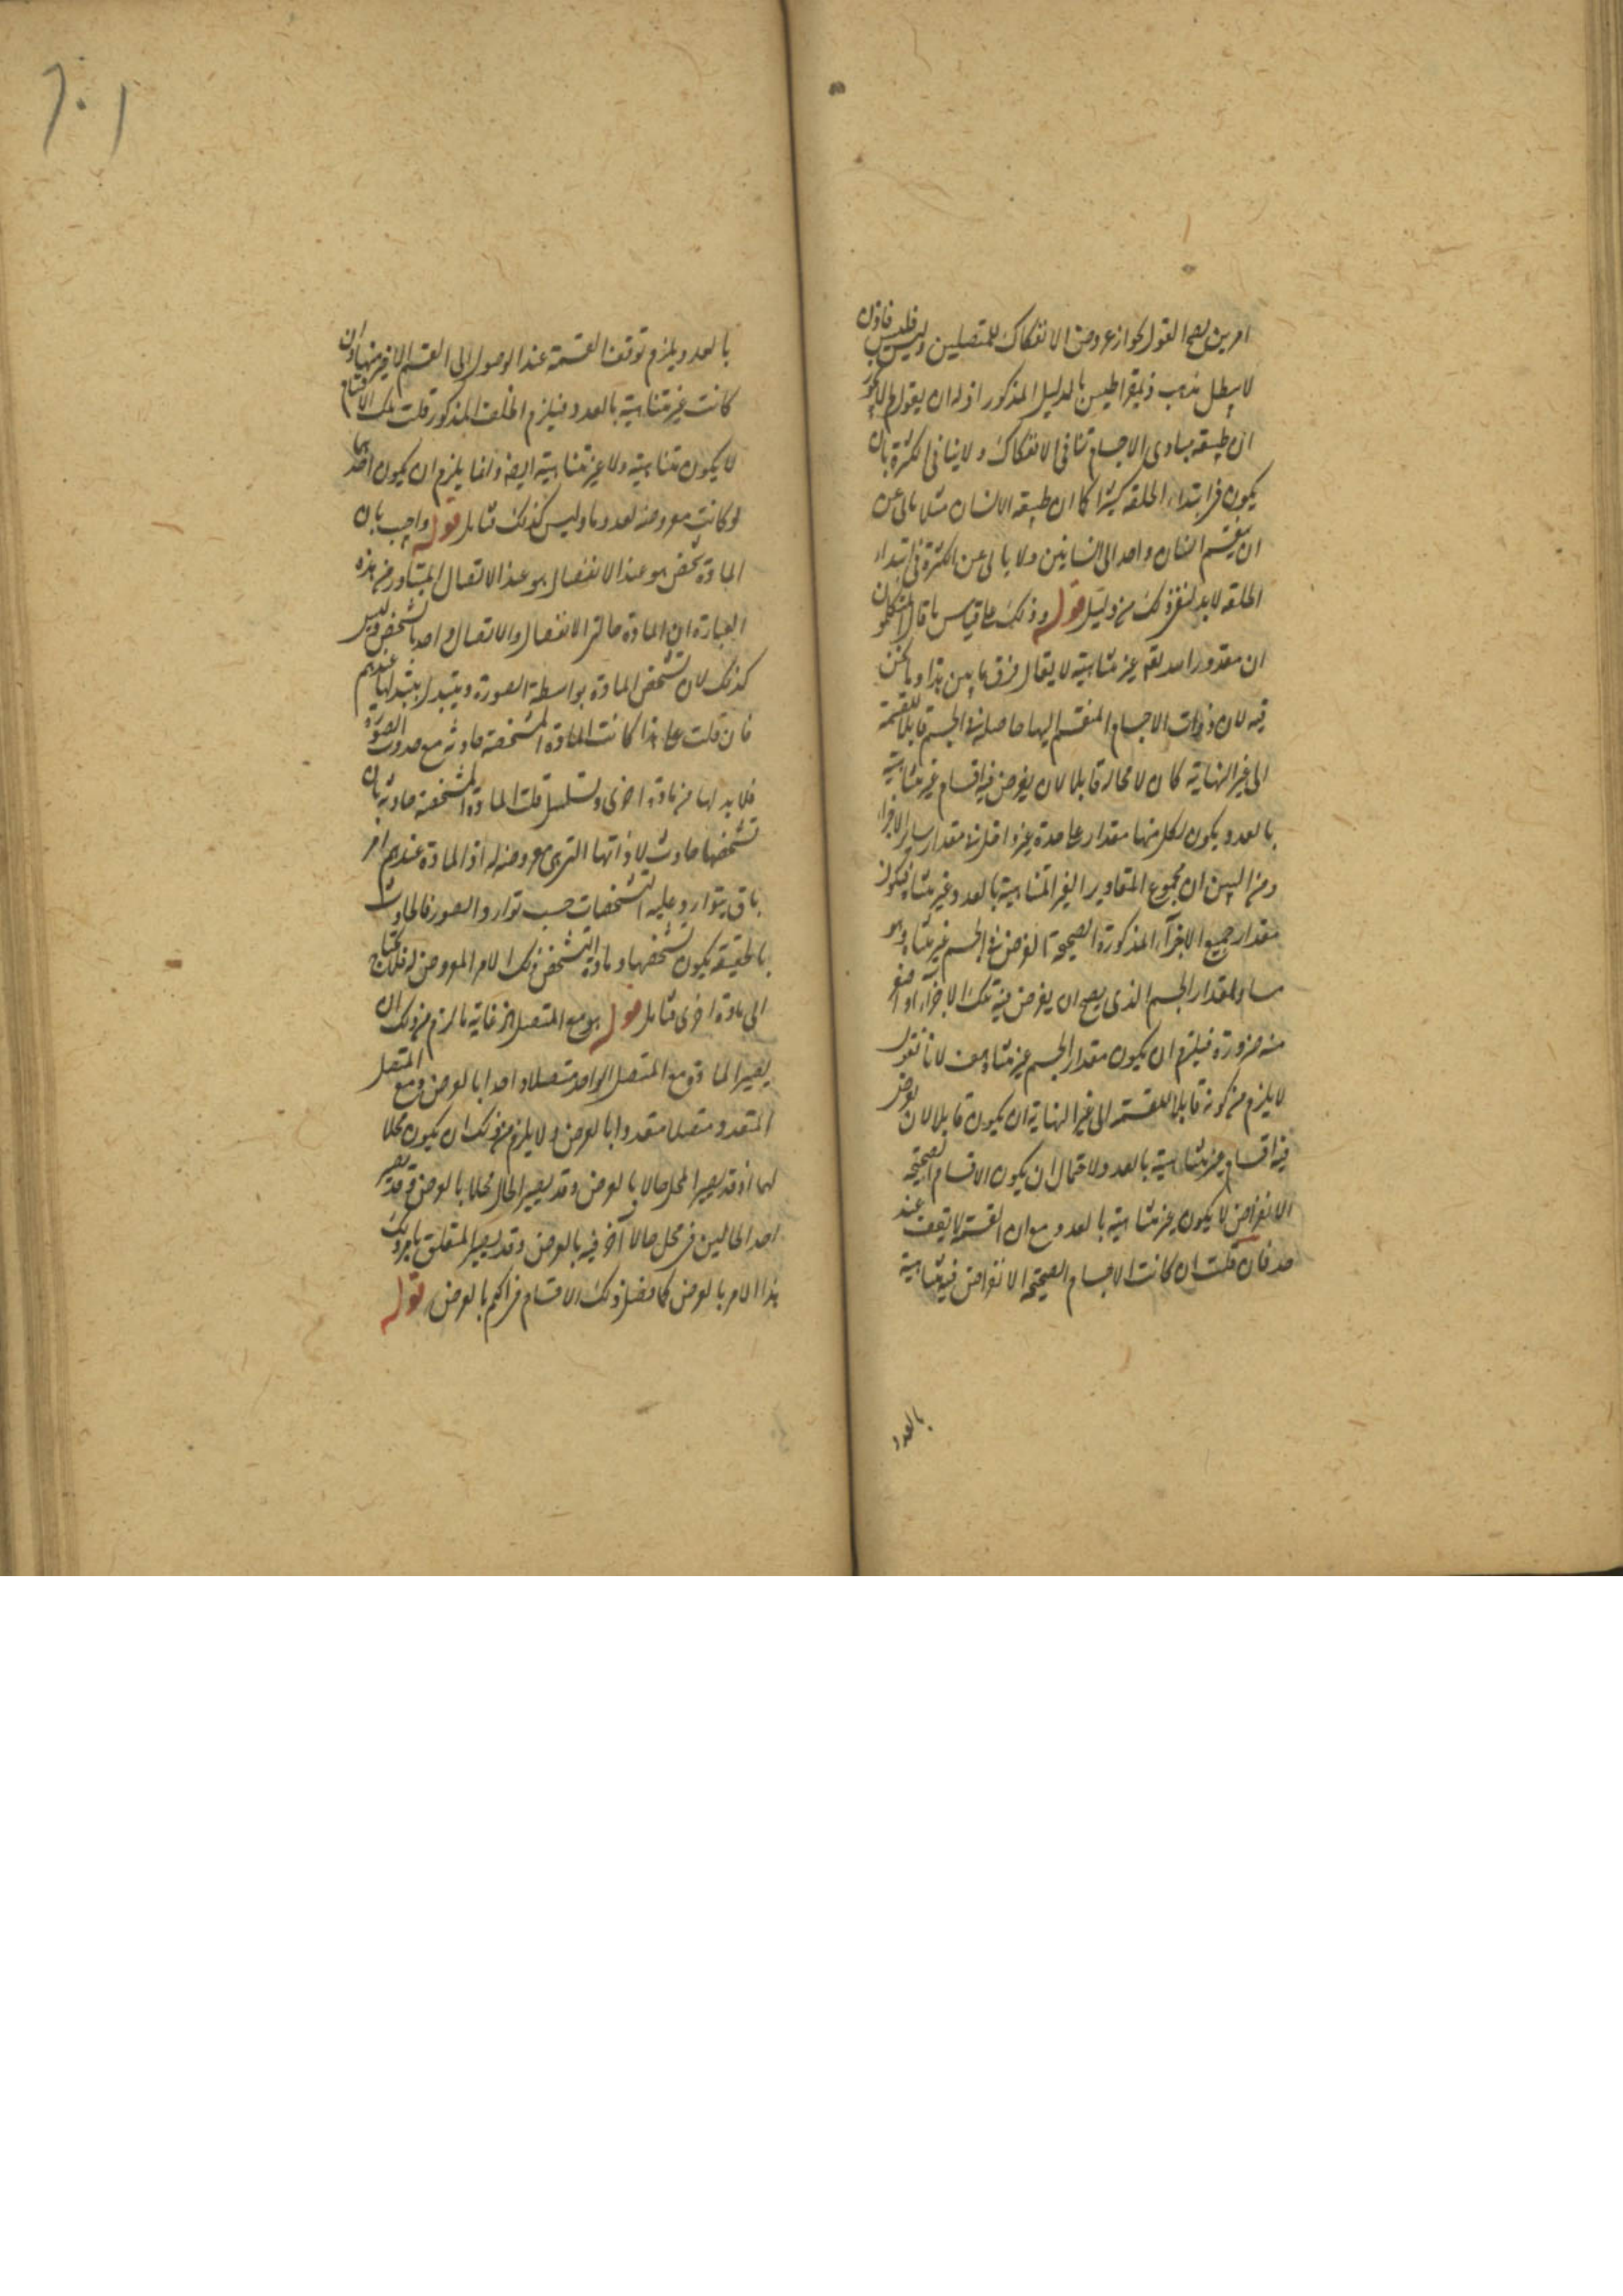 امرين يصح القول بجواز عروض الانفكاك للمتصلين وليس فليس فاذن
لا يبطل مذهب ذيمقراطيس بالدليل المذكور اذ له ان يقول لم لا يجوز
ان طبيعة مبادى الاجسام تنافى الانفكاك ولا ينافى الكثرة بان
يكون فى ابتداء الخلقة كثيرا كما ان طبيعة الانسان مثلا يابى عن
ان ينقسم انسان واحد الى انسانين ولا يابى عن الكثرة فى ابتداء
الخلقة لابد لنفى ذلك من دليل قوله وذلك على قياس ما قال المتكلمون
ان مقدورات الله تعالى غير متناهية لا يقال فرق ما بين هذا وما نحن
فيه لان ذوات الاجسام المنقسم اليها حاصلة فى الجسم قابلا للقسمة
الى غير النهاية كان لا محالة قابلا لان يفرض فيه اقسام غير متناهية
بالعدد ويكون لكل منها مقدار على حدة غير داخل فى مقدار ساير الاجزاء
ومن البين ان مجموع المقادير الغير المتناهية بالعدد غير متناه فيكون
مقدار جميع الاجزآء المذكورة الصحيحة الفرض فى الجسم غير متناه وهو
مساو لمقدار الجسم الذى يصح ان يفرض فيه تلك الاجزآء او انقص
منه ضرورة فيلزم ان يكون مقدار الجسم غير متناه هف لانا نقول
لا يلزم من كونه قابلا للقسمة الى غير النهاية ان يكون قابلا لان يفرض
فيه اقسام غير متناهية بالعدد ولاحتمال ان يكون الاقسام الصحيحة
الانفراض لا يكون غير متناهية بالعدد مع ان القسمة لا تقف عند
حد فان قلت ان كانت الاجسام الصحيحة الانفراض فيه متناهية
بالعدد
بالعدد ويلزم توقف القسمة عند الوصول الى القسم الاخير منها وان
كانت غير متناهية بالعدد فيلزم الخلف المذكور قلت تلك الاقسام
لا يكون متناهية ولا غير متناهية ايضا وانما يلزم ان يكون احدهما
لو كانت معروضة لعدد ما وليس كذلك فتامل قوله واجيب بان
المادة شخص هو عند الانفصال هو عند الاتصال المتبادر من هذه
العبارة ان المادة حالتى الانفصال والاتصال واحد بالشخص وليس
كذلك لان تشخص المادة بواسطة الصورة ويتبدل بتبدلها عندهم
فان قلت على هذا كانت المادة المشخصة حادثة مع حدوث الصورة
فلا بد لها من مادة اخرى وتسلسل قلت المادة المشخصة حادثة بان
تشخصها حادث لا ذاتها التى هى معروضة له اذ المادة عندهم امر
باق يتوارد عليه التشخصات حسب توارد الصور فالحادث
بالحقيقة يكون تشخصها ومادة التشخص ذلك الامر المعروض له فلا يحتاج
الى مادة اخرى فتامل قوله هو مع المتصل الخ غاية ما لزم من ذلك ان
يصير المادة مع المتصل الواحد متصلا واحدا بالعرض ومع المتصل
المتعدد متصلا متعددا بالعرض ولا يلزم من ذلك ان يكون محلا
لهما اذ قد يصير المحل حالا بالعرض وقد يصير الحال محلا بالعرض وقد يصير
احد الحالين فى محل حالا آخر فيه بالعرض وقد يصير المتعلق بامر ذلك
هذا الامر بالعرض كما فصل ذلك الاقسام فى الحكم بالعرض قوله